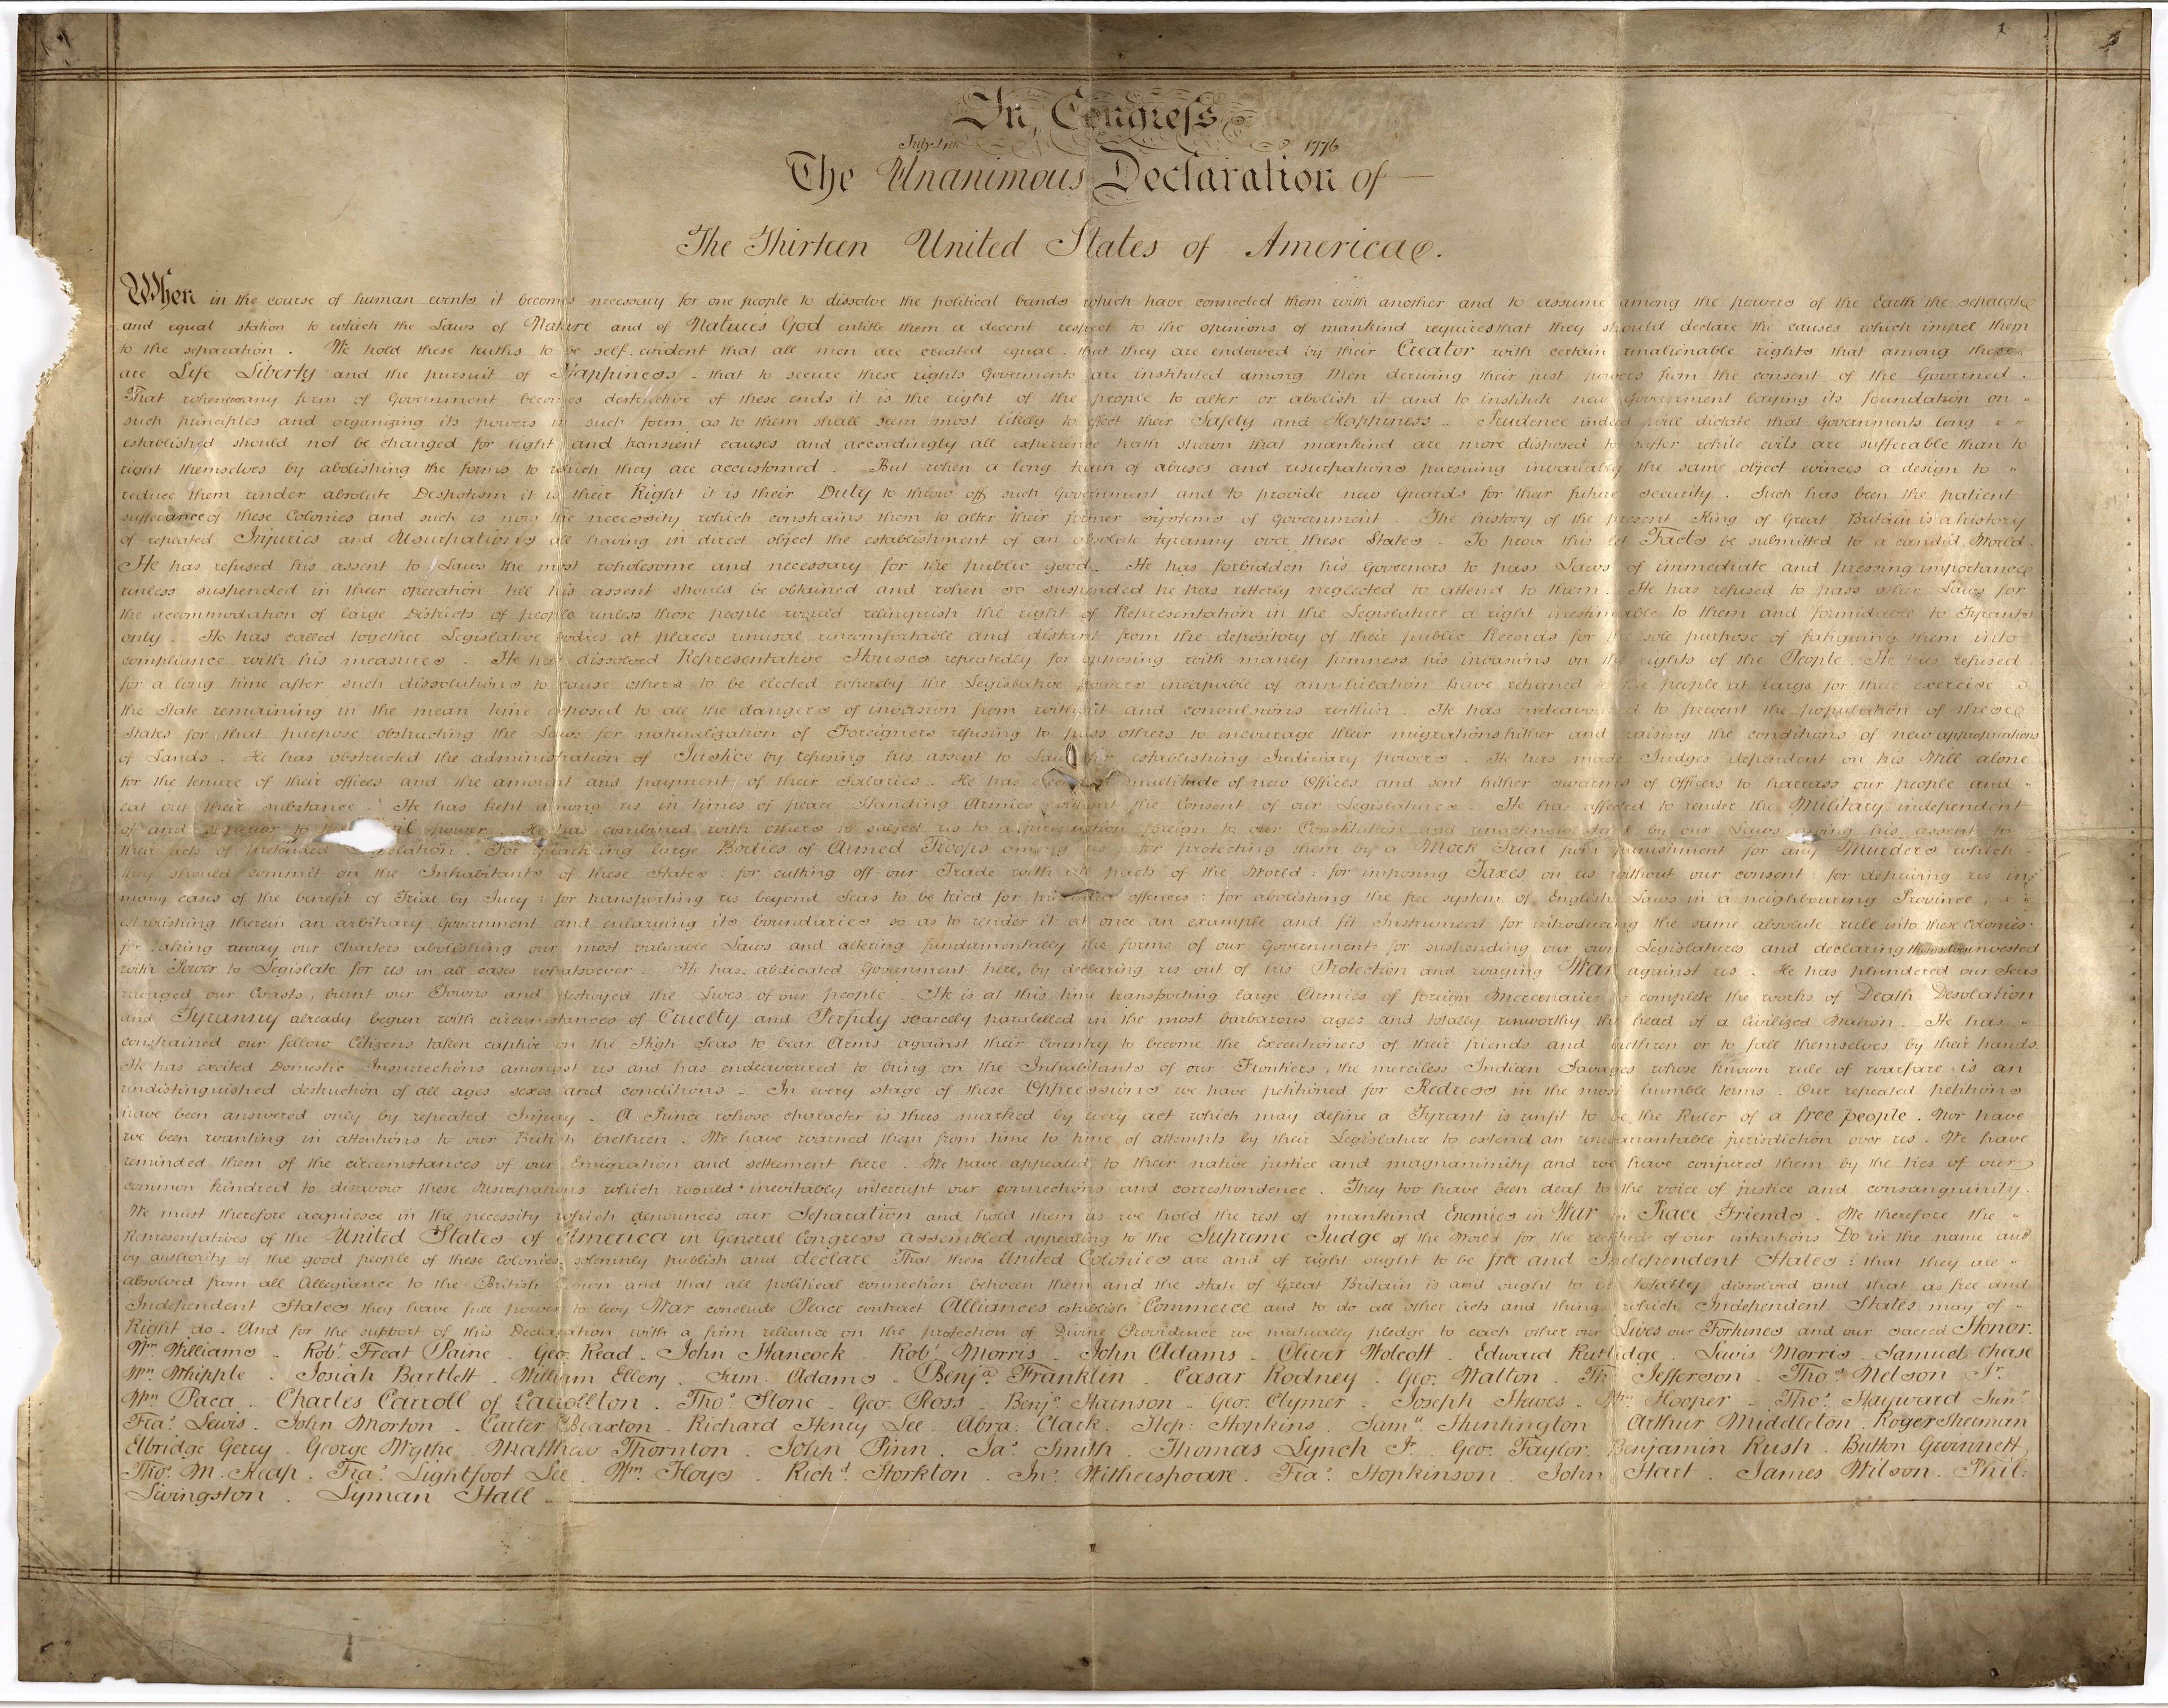 In Congress
July 4th 1776
The Unanimous Declaration of
The Thirteen United States of America.
When in the course of human events it becomes necessary for one people to dissolve the political bands which have connected them with another and to assume among the powers of the Earth the separate
and equal station to which the Laws of Nature and of Nature's God entitle them a decent respect to the opinions of mankind requires that they should declare the causes which impel them
to the separation . We hold these truths to be self-evident that all men are created equal . that they are endowed by their Creator with certain unalienable rights that among these
are Life Liberty and the pursuit of Happiness . that to secure these rights Goverments are instituted among Men deriving their just powers from the consent of the Governed .
That whenever any form of Government becomes destructive of these ends it is the right of the people to alter or abolish it and to institute new Government laying its foundation on "
such principles and organizing its powers in such form as to them shall seem most likely to effect their Safety and Happiness . Prudence indeed will dictate that Governments long " "
established should not be changed for light and transient causes and accordingly all experience hath shewn that mankind are more disposed to suffer while evils are sufferable than to
right themselves by abolishing the forms to which they are accustomed . But when a long train of abuses and usurpations pursuing invariably the same object evinces a design to "
reduce them under absolute Despotism it is their Right it is their Duty to throw off such Government and to provide new Guards for their future security . Such has been the patient
sufferance of these Colonies and such is now the necessity which constrains them to alter their former systems of Government . The history of the present King of Great Britain is a history
of repeated Injuries and Usurpations all having in direct object the establishment of an absolute tyranny over these States . To prove this let Facts be submitted to a candid World .
He has refused his assent to Laws the most wholesome and necessary for the public good . He has forbidden his Governors to pass Laws of immediate and pressing importance
unless suspended in their operation till his assent should be obtained and when so suspended he has utterly neglected to attend to them . He has refused to pass other Laws for
the accommodation of large Districts of people unless those people would relinquish the right of Representation in the Legislature a right inestimable to them and formidable to Tyrants
only . He has called together Legislative bodies at places unusual uncomfortable and distant from the depository of their public Records for the sole purpose of fatiguing them into
compliance with his measures . He has dissolved Representative Houses repeatedly for opposing with manly firmness his invasions on the rights of the People . He has refused
for a long time after such dissolutions to cause others to be elected whereby the Legislative powers incapable of annihilation have returned to the people at large for their exercise
the State remaining in the mean time exposed to all the dangers of invasion from without and convulsions within . He has endeavoured to prevent the population of these
States for that purpose obstructing the Laws for naturalization of Foreigners refusing to pass others to encourage their migrations hither and raising the conditions of new appropriations
of Lands . He has obstructed the administration of Justice by refusing his assent to Laws for establishing Judiciary powers . He has made Judges dependent on his Will alone
for the tenure of their offices and the amount and payment of their Salaries . He has multitude of new Offices and sent hither swarms of Officers to harrass our people and "
eat out their substance . He has kept among us in times of peace Standing Armies without the Consent of our Legislatures . He has affected to render the Military independent
of and superior to power . He has combined with others to subject us to a jurisdiction foreign to our Constitution and unacknowledged by our Laws giving his assent to
their acts of pretended Legislation . For quartering large Bodies of Armed Troops among us for protecting them by a Mock Trial from punishment for any Murders which
they should commit on the Inhabitants of these States : for cutting off our Trade with all parts of the World : for imposing Taxes on us without our consent : for depriving us in
many cases of the benefit of Trial by Jury : for transporting us beyond Seas to be tried for pretended offences : for abolishing the free system of English Laws in a neighbouring Province , " "
establishing therein an arbitrary Government and enlarging its boundaries so as to render it at once an example and fit Instrument for introducing the same absolute rule into these Colonies .
for taking away our Charters abolishing our most valuable Laws and altering fundamentally the forms of our Government : for suspending our own Legislatures and declaring themselves invested
with Power to Legislate for us in all cases whatsoever . He has abdicated Government here, by declaring us out of his Protection and waging War against us . He has plundered our Seas
ravaged our Coasts, burnt our Towns and destroyed the Lives of our people . He is at this time transporting large Armies of foreign Mercenaries to complete the works of Death Desolation
and Tyranny already begun with circumstances of Cruelty and Perfidy scarcely paralelled in the most barbarous ages and totally unworthy the head of a Civilized Nation . He has "
constrained our fellow Citizens taken captive on the High Seas to bear Arms against their Country to become the Executioners of their friends and brethren or to fall themselves by their hands
He has excited Domestic Insurrections amongst us and has endeavoured to bring on the Inhabitants of our Frontiers , the merciless Indian Savages whose known rule of warfare is an
undistinguished destruction of all ages sexes and conditions . In every stage of these Oppressions we have petitioned for Redress in the most humble terms . Our repeated petitions
have been answered only by repeated Injury . A Prince whose character is thus marked by every act which may define a Tyrant is unfit to be the Ruler of a free people . Nor have
we been wanting in attentions to our British brethren . We have warned them from time to time of attempts by their Legislature to extend an unwarrantable jurisdiction over us . We have
reminded them of the circumstances of our Emigration and settlement here . We have appealed to their native justice and magnanimity and we have conjured them by the ties of our
common kindred to disavow these Usurpations which would inevitably interrupt our connections and correspondence . They too have been deaf to the voice of justice and consanguinity .
We must therefore acquiesce in the necessity which denounces our Separation and hold them as we hold the rest of mankind Enemies in War in Peace Friends . We therefore the "
Representatives of the United States of America in General Congress assembled appealing to the Supreme Judge of the World for the rectitude of our intentions Do in the name and
by authority of the good people of these Colonies solemnly publish and declare That these United Colonies are and of right ought to be free and Independent States : that they are "
absolved from all Allegiance to the British Crown and that all political connection between them and the state of Great Britain is and ought to be totally dissolved and that as free and
Independent States they have free power to levy War conclude Peace contract Alliances establish Commerce and to do all other acts and things which Independent States may of "
Right do . And for the support of this Declaration with a firm reliance on the protection of Divine Providence we mutually pledge to each other our Lives our Fortunes and our sacred Honor.
Wm Williams . Robt Treat Paine . Geo. Read . John Hancock . Robt Morris . John Adams . Oliver Wolcott . Edward Rutledge . Lewis Morris . Samuel Chase
Wm Whipple . Josiah Bartlett . William Ellery . Sam. Adams . Benja Franklin . Casar Rodney . Geo. Walton . Th Jefferson . Thos Nelson Jr.
Wm Paca . Charles Carroll of Carrollton . Thos Stone . Geo. Ross . Benj. Harrison . Geo. Clymer . Joseph Hewes . Wm Hooper . Thos Hayward Junr
Fras Lewis . John Morton . Carter Braxton . Richard Henry Lee . Abra: Clark . Step: Hopkins . Saml Huntington . Arthur Middleton . Roger Sherman
Elbridge Gerry . George Wythe . Matthew Thornton . John Pinn . Jas Smith . Thomas Lynch Jr . Geo. Taylor . Benjamin Rush . Button Gwinnett
Thos M. Keap . Fras Lightfoot Lee . Wm Floyd . Richd Storkton . Jno Witherspoare . Fras Hopkinson . John Hart . James Wilson . Phil:
Livingston . Lyman Hall